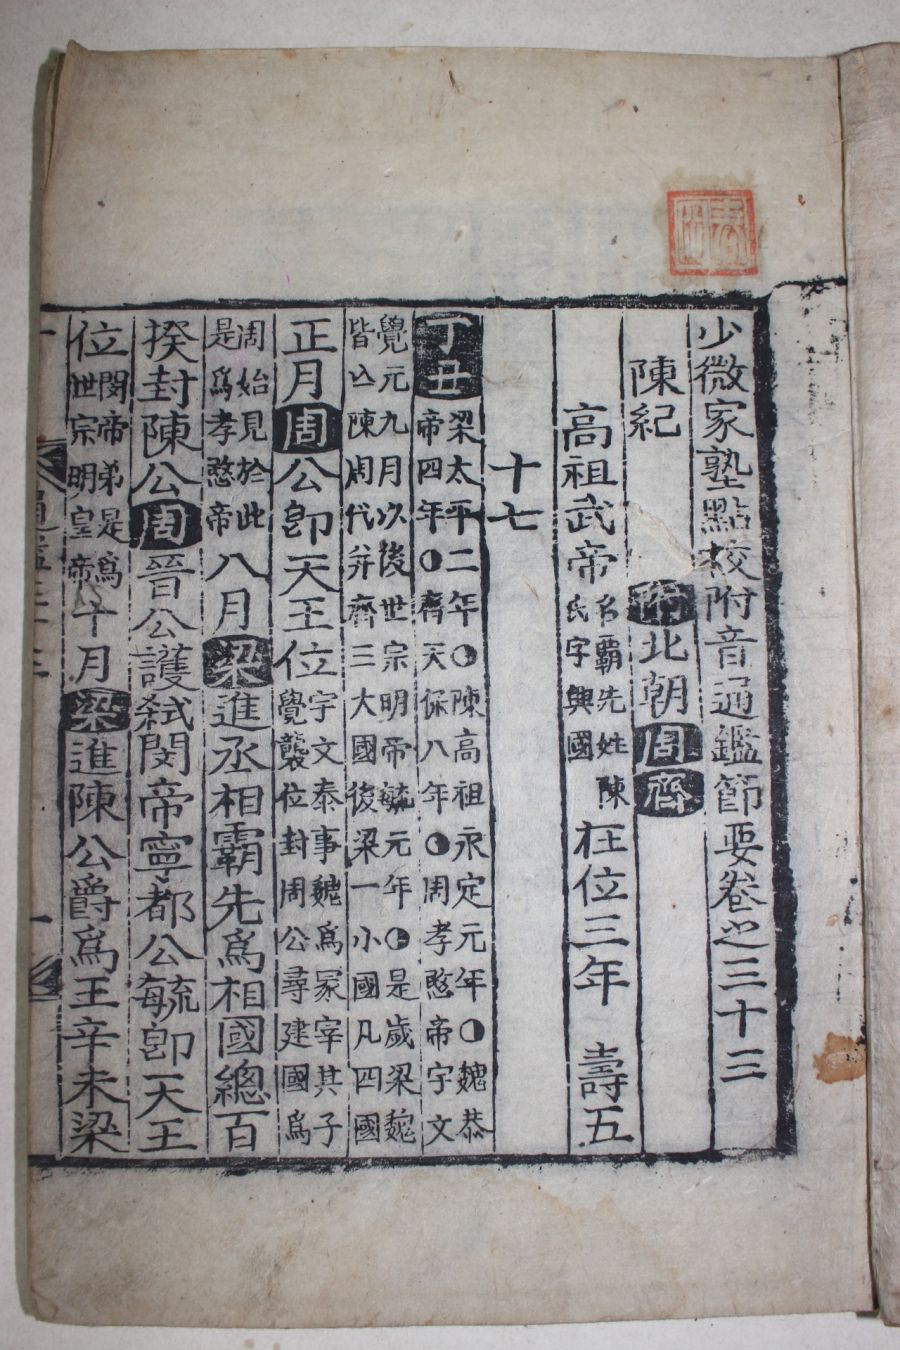 少微家塾點校附音通鑑節要卷之三十三
陳紀 附北朝周齊
高祖武帝名霸先姓陳氏字興國在位三年 壽五
十七
丁丑梁太平二年◑陳高祖永定元年◑魏恭帝四年◑齊天保八年◑周孝愍帝宇文
覺元九月以後世宗明帝毓元年◑是歲梁魏皆亾陳周代并齊三大國後梁一小國凡四國
正月周公卽天王位宇文泰事魏爲冢宰其子覺襲位封周公尋建國爲
周始見於此是爲孝愍帝八月梁進丞相霸先爲相國總百
揆封陳公周晉公護弑閔帝寧都公毓卽天王
位閔帝弟是爲世宗明皇帝十月梁進陳公爵爲王辛未梁